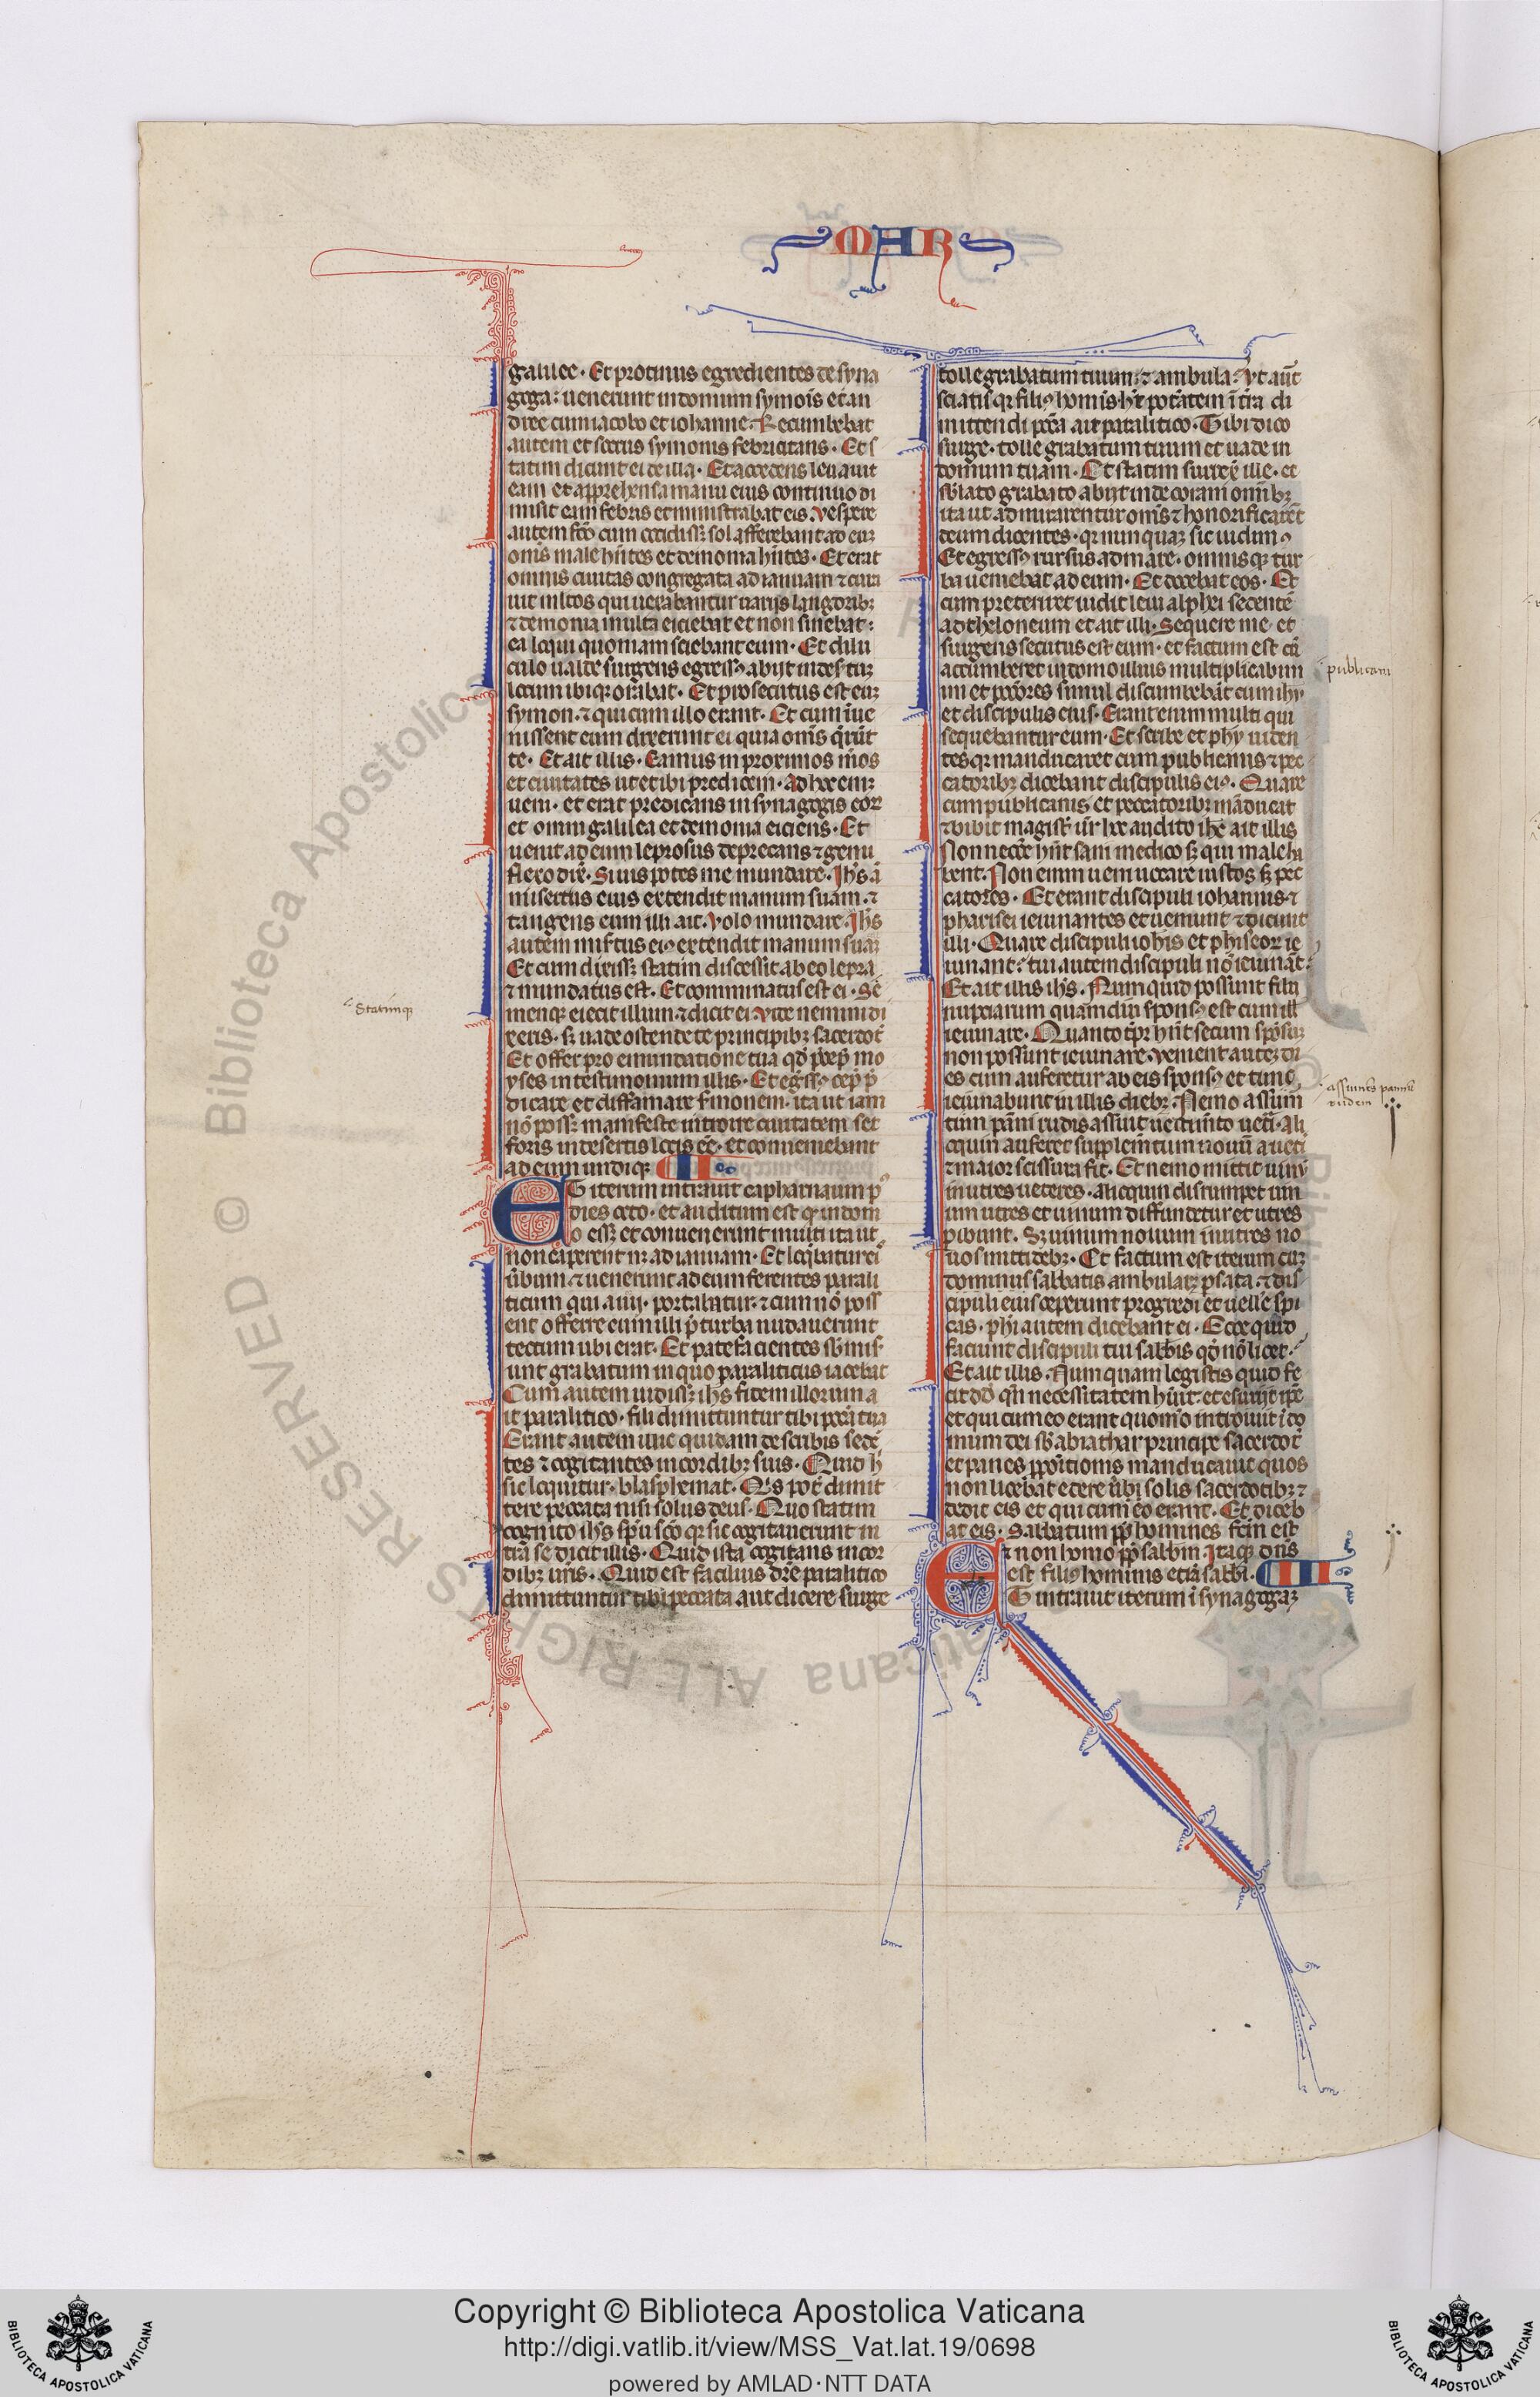 MAR
galilee · Et protinus egredientes de syna
goga: uenerunt in domum symōis et an
dree cum iacobo et iohanne · Recumbebat
autem et socrus symonis febricitans · Et s
tatim dicunt ei de illa · Et accedens leuauit
eam et apprehensa manu eius continuo di
misit eam febris et ministrabat eis. Vespere
autem fc̄o cum occidiss; sol afferebant ad eū
om̄s male hn̄tes et demonia hn̄tes · Et erat
omnis ciuitas congregata ad ianuam ⁊ cura
uit ml̄tos qui uexabantur uarijs langorib;
⁊ demonia multa eiciebat et non sinebat:
ea loqui quoniam sciebant eum · Et dilu
culo ualde surgens egress; abijt in desertū
locum ibiq; orabat · Et prosecutus est eū
symon · ⁊ qui cum illo erant · Et cum īue
nissent eum dixerunt ei quia om̄s q̄rūt
te · Et ait illis · Eamus in proximos uicos
et ciuitates ut et ibi predicem · Ad hoc enī
ueni · et erat predicans in synagogis eoꝝ
et omni galilea et demonia eiciens · Et
uenit ad eum leprosus deprecans ⁊ genu
flexo dix̄ · Si uis potes me mundare · Ihs̄ ā
misertus eius extendit manum suam · ⁊
tangens eum illi ait · Volo mundare · Ihs̄
autem mis̄tus eiꝰ extendit manum suā
Et cum dixiss; statim discessit ab eo lepra
⁊ mundatus est · Et comminatus est ei · Sē
statimque
menq; eiecit illum · ⁊ dicit ei · Vide nemini di
xeris · s; uade ostende te principib; sacerdot̄
Et offer pro emundatione tua qd̄ p̄cep̄ mo
yses in testimonium illis · Et egress; cep̄ p̄
dicare et diffamare s̄monem · ita ut iam
nō poss; manifeste introire ciuitatem set
foris in desertis locis eē · et conueniebant
ad eum undiq; II
Et iterum intrauit capharnaum pꝰ
dies octo · et auditum est q̄ in dom
o ess; et conuenerunt multi ita ut
non caperent n; ad ianuam · Et loq̄batur ei
ūbum · ⁊ uenerunt ad eum ferentes parali
ticum qui a iiij · portabatur · ⁊ cum nō poss
ent offerre eum illi p̄ turba nudauerunt
tectum ubi erat · Et patefacientes sb̄mis
unt grabatum in quo paraliticus iacebat
Cum autem uidiss; ihs̄ fidem illorum a
it paralitico · fili dimittuntur tibi pcc̄a tua
Erant autem illic quidam de scribis sedē
tes ⁊ cogitantes in cordib; suis · Quid h̄
sic loquitur · blasphemat · Qˢ pot̄ dimit
tere peccata nisi solus deus · Quo statim
cognito ihs̄ sp̄u sc̄o q; sic cogitauerunt in
tra se dicit illis · Quid ista cogitans in cor
dib; uris · Quid est facilius dr̄e paralitico
dimittuntur tibi peccata aut dicere surge
tolle grabatum tuum: ⁊ ambula · Vt aut̄
sciatis q; filiꝰ homis h̄t potātem ī tr̄a di
mittendi pcc̄a ait paralitico · Tibi dico
surge · tolle grabatum tuum et uade in
domum tuam · Et statim surrex̄ ille · et
sb̄lato grabato abijt inde coram omib;
ita ut admirarentur om̄s ⁊ honorificarēt
deum dicentes · q; nunquā sic uidimꝰ
Et egressꝰ rursus ad mare · omnisq; tur
ba ueniebat ad eum · Et docebat eos · Et
cum preteriret uidit leui alphei sedentē
ad theloneum et ait illi · Sequere me · et
surgens secutus est eum · et factum est cū
accumberet in domo illius multi plicabum
publicani
ni et pccōres simul discumbebāt cum ihū
et discipulis eius · Erant enim multi qui
sequebantur eum · Et scribe et phy uiden
tes q; manducaret cum publicanis ⁊ pec
catorib; dicebant discipulis eiꝰ · Quare
cum publicanis et peccatorib; māducat
⁊ bibit magist̄ ur̄ hoc audito ihc̄ ait illis
Non necc̄e hn̄t sani medico s; qui male ha
bent. Non enim ueni uocare iustos s; pec
catores · Et erant discipuli iohannis · ⁊
pharisei ieiunantes et ueniunt ⁊ dicunt
illi · Quare discipuli ioh̄is et phiseoꝝ ie
iunant: tui autem discipuli nō ieiunāt:
Et ait illis ihs̄ · Num quid possunt filii
nuptiarum quamdiu sponsꝰ est cum ill̄
ieiunare · Quanto tp̄r hn̄t secum sp̄osū
non possunt ieiunare. Venient autē di
es cum auferetur ab eis sponsꝰ et tunc
assuentes panni
rudem
ieiunabunt in illis dieb; · Nemo assum̄
tum pāni rudis assuit uestim̄to ueti · ali
oquin auferet supplem̄tum nouū a ueti
⁊ maior scissura fit · Et nemo mittit uinū
in utres ueteres · alioquin disrumpet uin
um utres et uinum diffundetur et utres
ꝑibunt · S; uinum nouum in utres no
uos mitti deb; · Et factum est iterum cū
dominus sabbatis ambular; ꝑ sata · ⁊ dis
cipuli eius ceperunt progredi et uelle spi
cas · phi autem dicebant ei · Ecce quid
faciunt discipuli tui sabbis qd̄ nō licet ·
Et ait illis · Num quam legistis quid fe
cit dd̄ qn̄ necessitatem hūit · et esurijt ip̄e
et qui cum eo erant quom̄o introiuit ī do
mum dei sb̄ abiathar principe sacerdot̄
et panes ppōitionis manducauit quos
non licebat edere n̄ibi solis sacerdotib; ⁊
dedit eis et qui cum eo erant · Et diceb
at eis · Sabbatum pp̄ homines fc̄m est
⁊ non homo pp̄ sabbm · Itaq; dn̄s
est filiꝰ hominis etiā sabbi · III
Et intrauit iterum ī synagogā
Copyright © Biblioteca Apostolica Vaticana
http://digi.vatlib.it/view/MSS_Vat.lat.19/0698
powered by AMLAD·NTT DATA
BIBLIOTECA APOSTOLICA VATICANA
BIBLIOTECA APOSTOLICA VATICANA